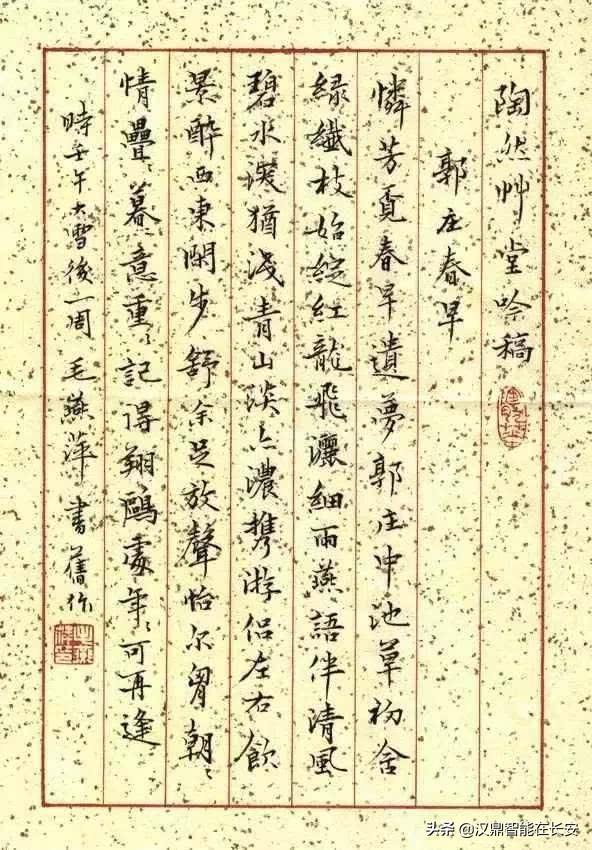 陶然艸堂吟稿
郭庄春早
憐芳覓春早遺夢郭庄中池草初含
緑纖枝始綻紅龍飛灑細雨燕語伴清風
碧水深猶浅青山淡亦濃攜游侶左右飲
景醉西東閑步舒余足放聲怡尔胷朝〻
情疊〻暮〻意重〻記得翔鷗處年〻可再逢
時壬午大雪後一周毛燕萍書舊作
头条 @汉鼎智能在长安